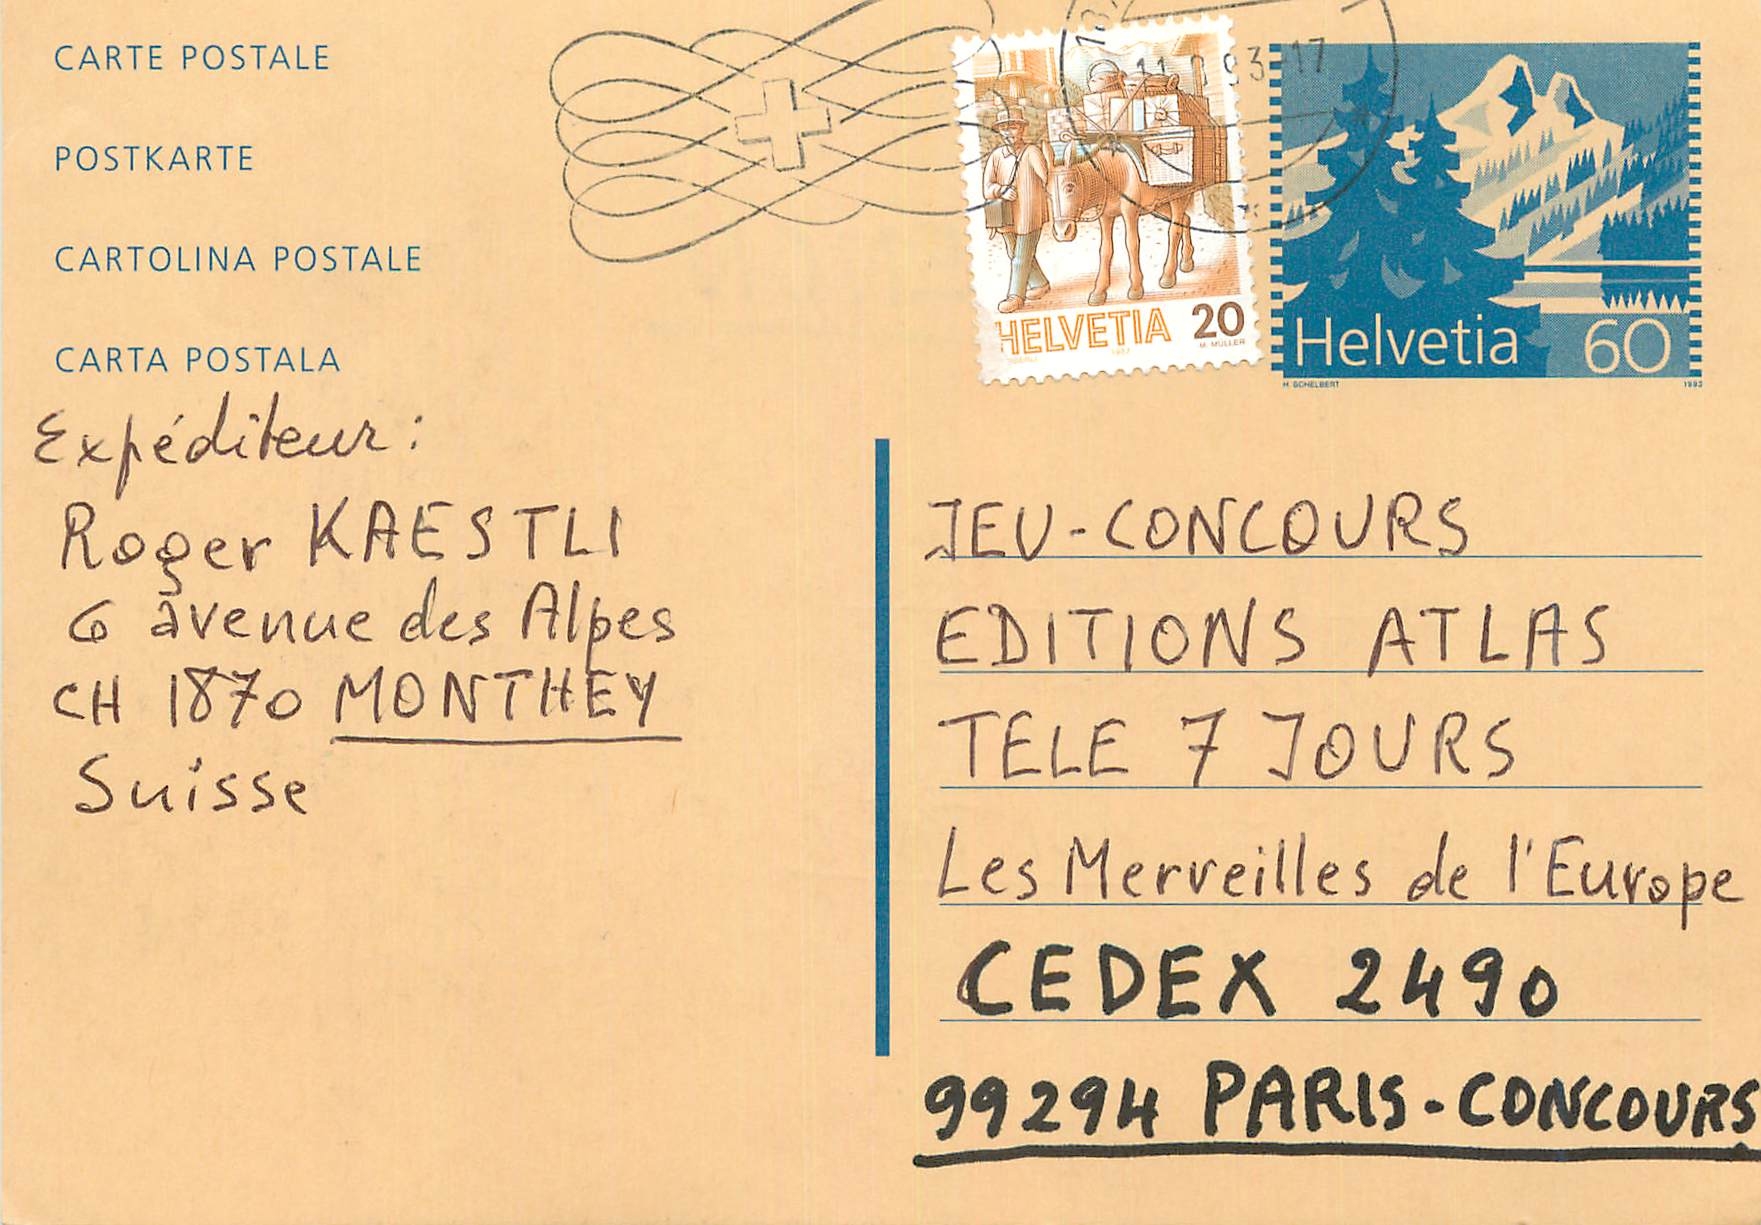 CARTE POSTALE
POSTKARTE
CARTOLINA POSTALE
CARTA POSTALA
HELVETIA 20
M. MÜLLER
Helvetia 60
H. SCHELBERT 1993
Expéditeur:
Roger KAESTLI
6 avenue des Alpes
CH 1870 MONTHEY
Suisse
JEU-CONCOURS
EDITIONS ATLAS
TELE 7 JOURS
Les Merveilles de l'Europe
CEDEX 2490
99294 PARIS-CONCOURS